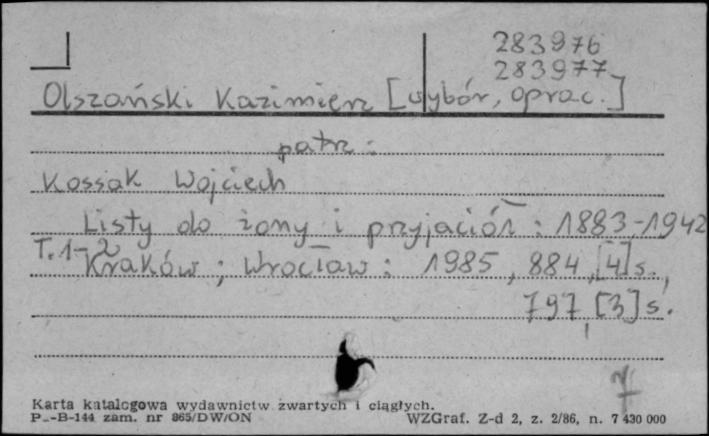 283976
283977
Olszański Kazimierz [wybór, oprac.]
patrz:
Kossak Wojciech
Listy do żony i przyjaciół: 1883-1942
T. 1-2
Kraków; Wrocław: 1985, 884, [4]s.,
797, [3]s.
Karta katalogowa wydawnictw zwartych i ciągłych.
P.-B-144 zam. nr 865/DW/ON WZGraf. Z-d 2, z. 2/86, n. 7 430 000